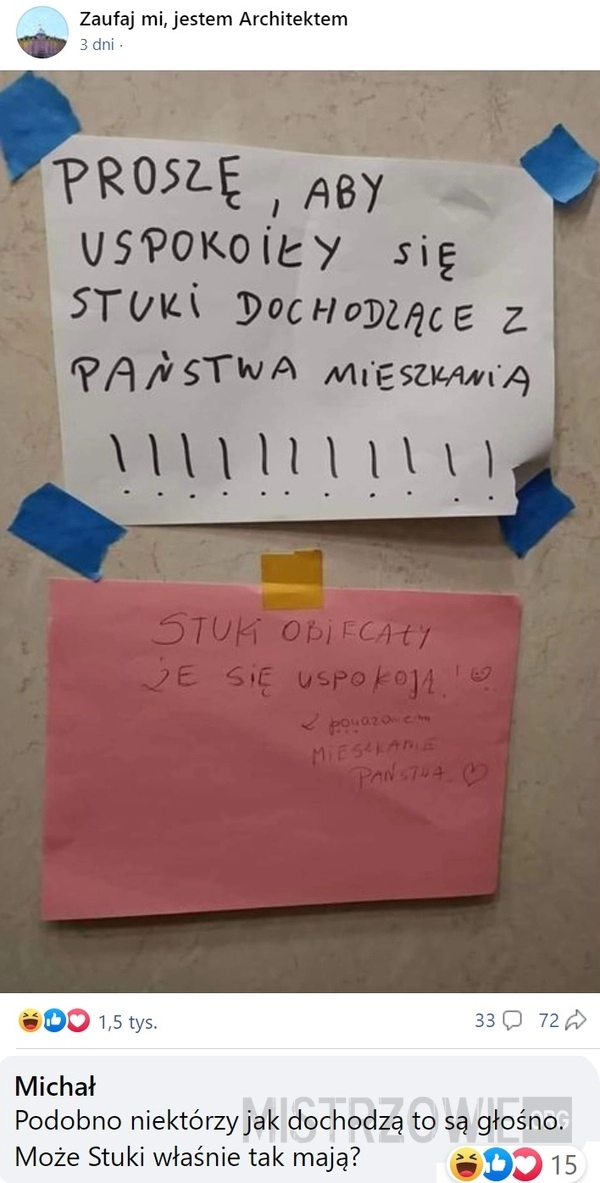 Zaufaj mi, jestem Architektem
3 dni ·
PROSZĘ, ABY
USPOKOIŁY SIĘ
STUKI DOCHODZĄCE Z
PAŃSTWA MIESZKANIA
! ! ! ! ! ! ! ! ! ! !
STUKI OBIECAŁY
ŻE SIĘ USPOKOJĄ!
Z poważaniem
MIESZKANIE
PAŃSTWA.
1,5 tys.
33 72
Michał
Podobno niektórzy jak dochodzą to są głośno.
Może Stuki właśnie tak mają?
15
MISTRZOWIE.ORG